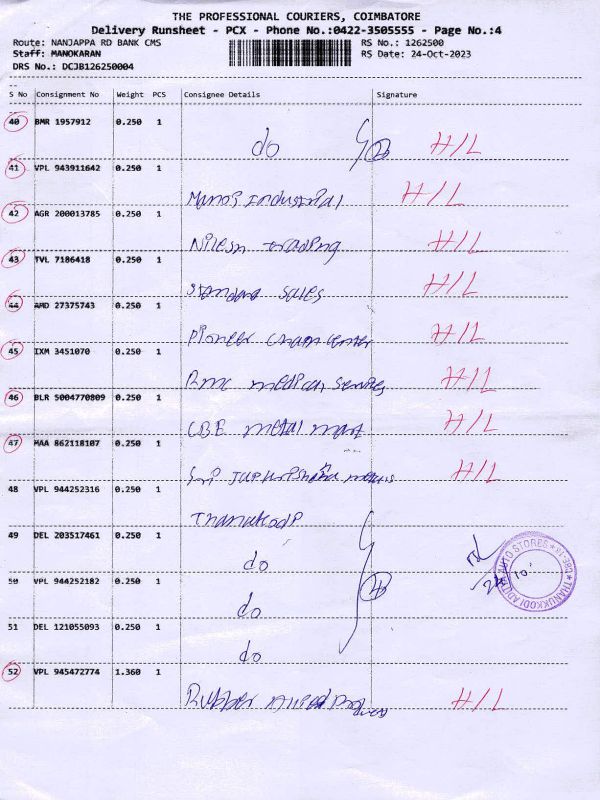 THE PROFESSIONAL COURIERS, COIMBATORE
Delivery Runsheet - PCX - Phone No.:0422-3505555 - Page No.:4
Route: NANJAPPA RD BANK CMS RS No.: 1262500
Staff: MANOKARAN RS Date: 24-Oct-2023
DRS No.: DCJB126250004
S No Consignment No Weight PCS Consignee Details Signature
40 BMR 1957912 0.250 1
do H/L
41 VPL 943911642 0.250 1
Manoj Industrial H/L
42 AGR 200013785 0.250 1
Nilesh trading H/L
43 TVL 7186418 0.250 1
Standard Sales H/L
44 AMD 27375743 0.250 1
Pioneer Chain center H/L
45 IXM 3451070 0.250 1
Rmc medical Services H/L
46 BLR 5004770809 0.250 1
CBE metal mart H/L
47 MAA 862118107 0.250 1
Sri H/L
48 VPL 944252316 0.250 1
Thanukodi
49 DEL 203517461 0.250 1
do
50 VPL 944252182 0.250 1
do
51 DEL 121055093 0.250 1
do
52 VPL 945472774 1.360 1
Rubber H/L
THANUKKODI AUTO STORES